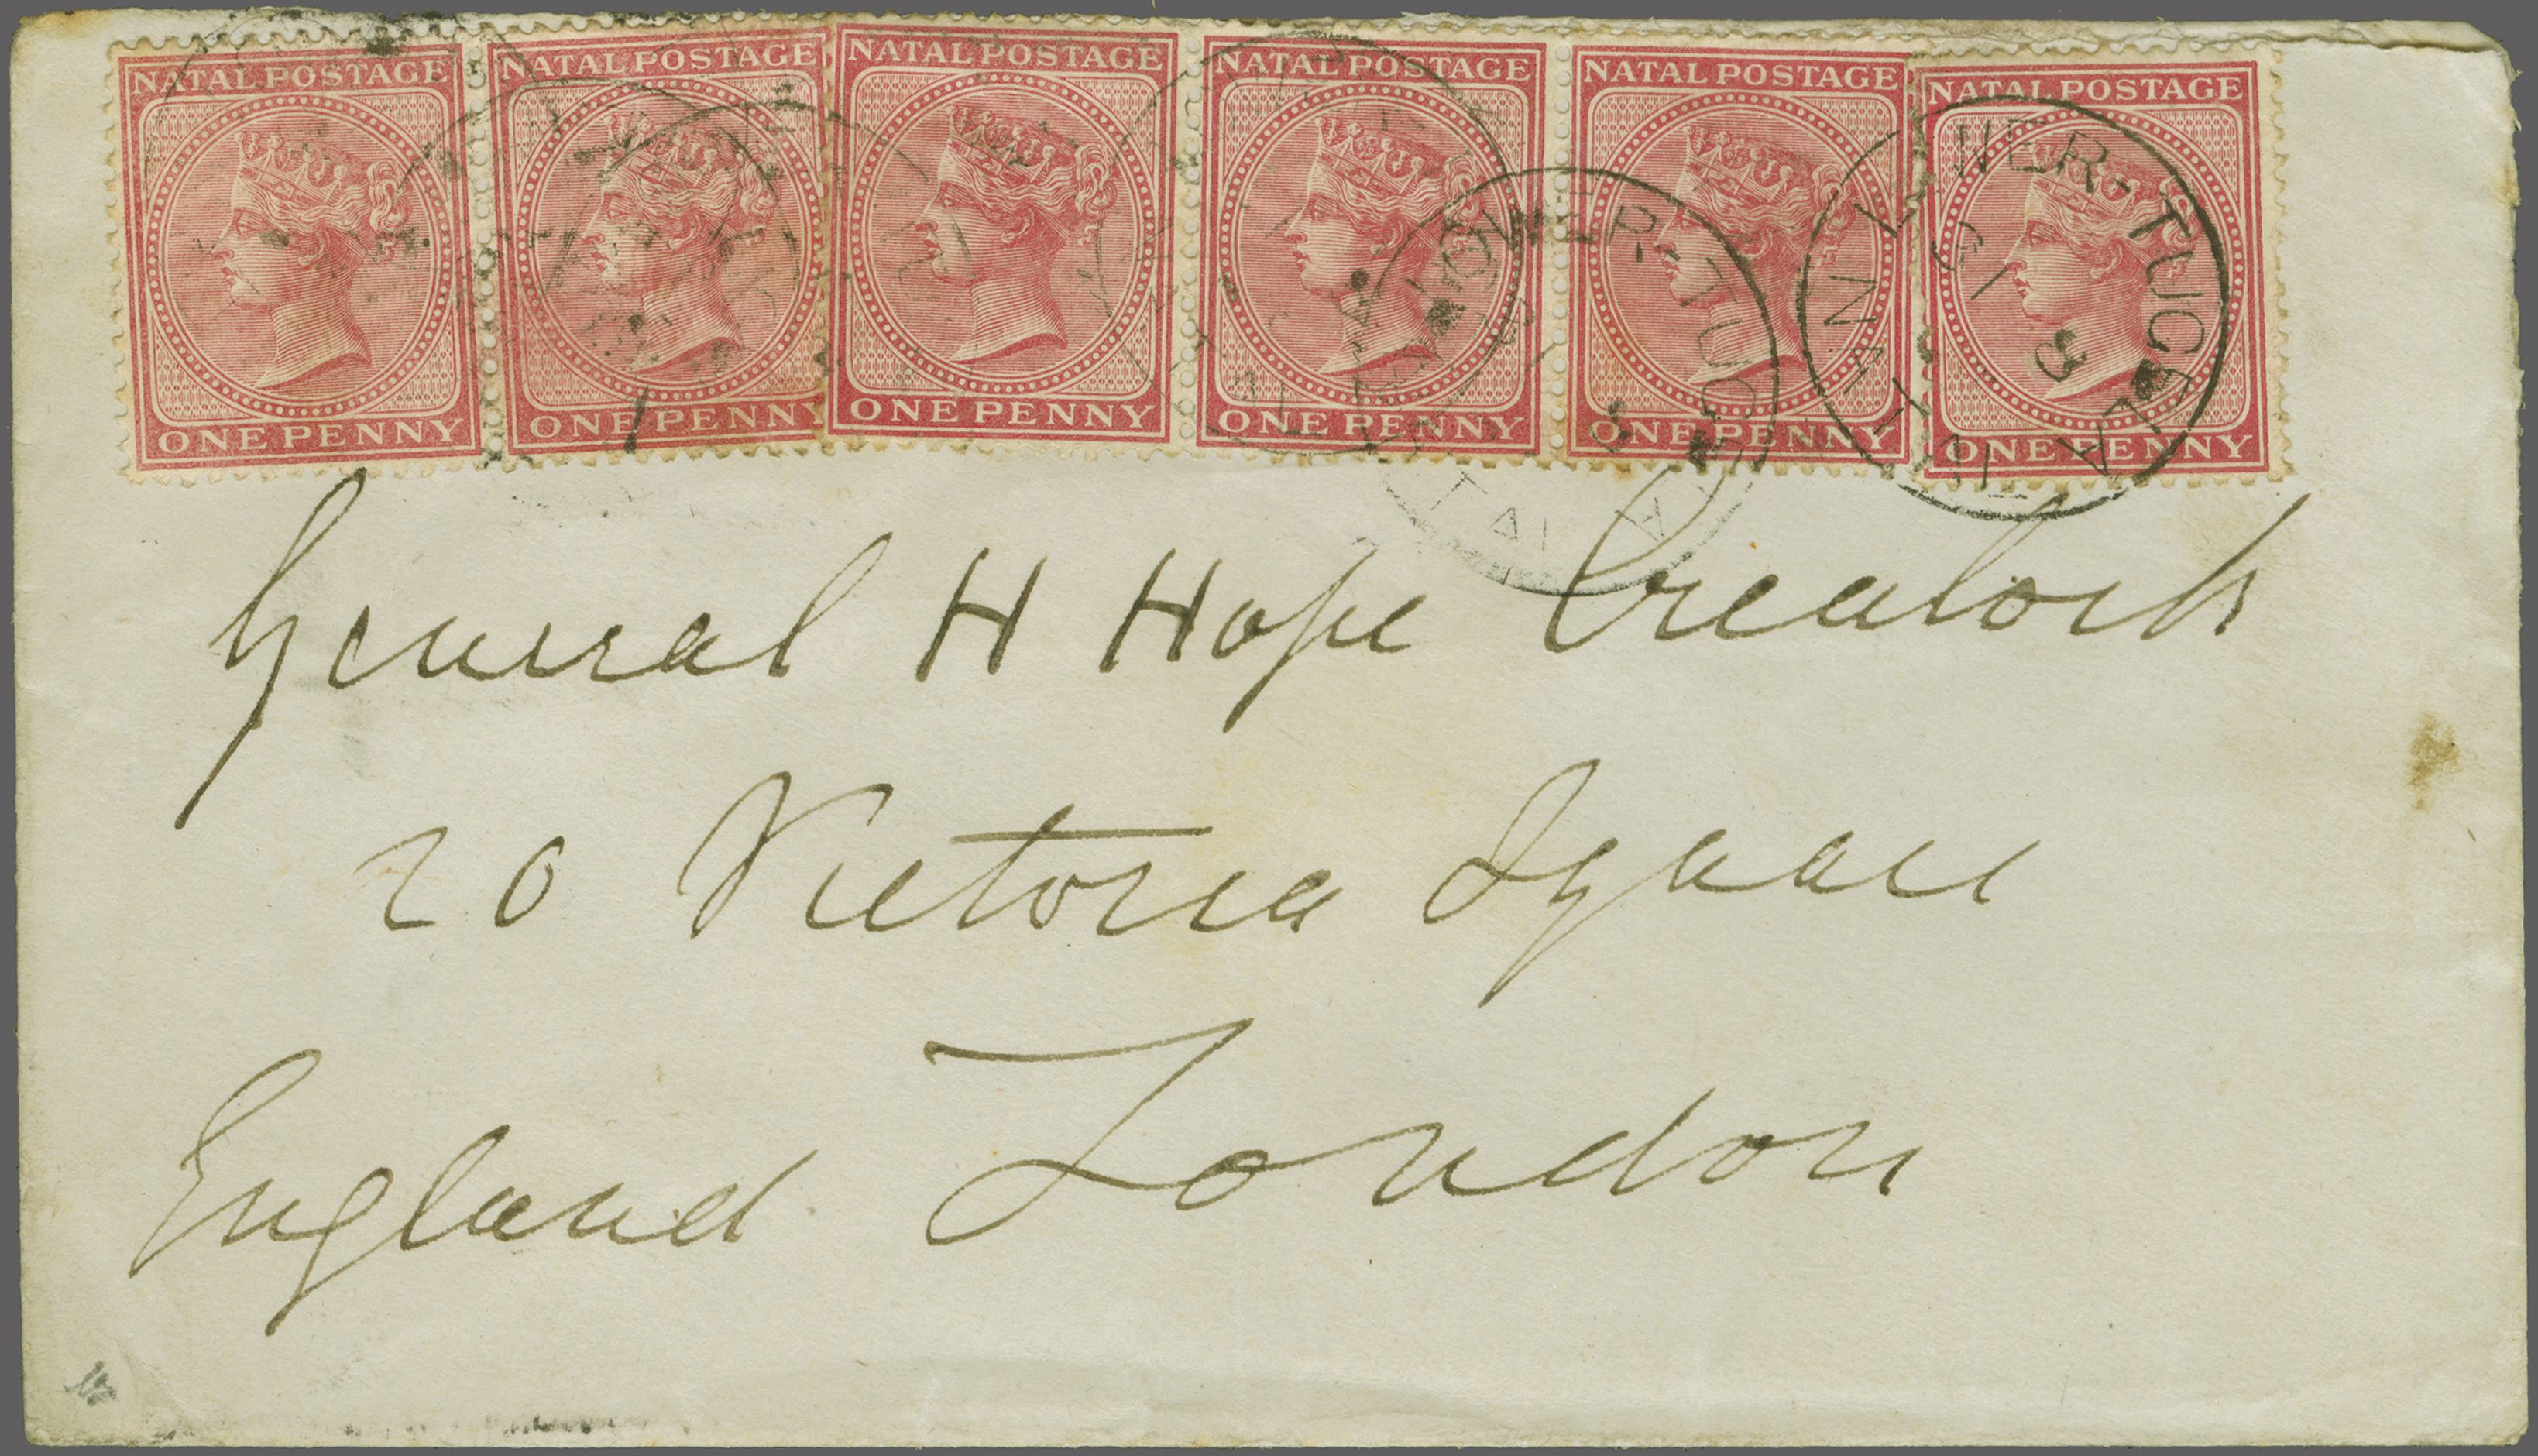 NATAL POSTAGE NATAL POSTAGE NATAL POSTAGE NATAL POSTAGE NATAL POSTAGE NATAL POSTAGE
ONE PENNY ONE PENNY ONE PENNY ONE PENNY ONE PENNY ONE PENNY
LOWER-TUG
LOWER-TUGELA
NATAL
General H Hope Crealock
20 Victoria Square
England London